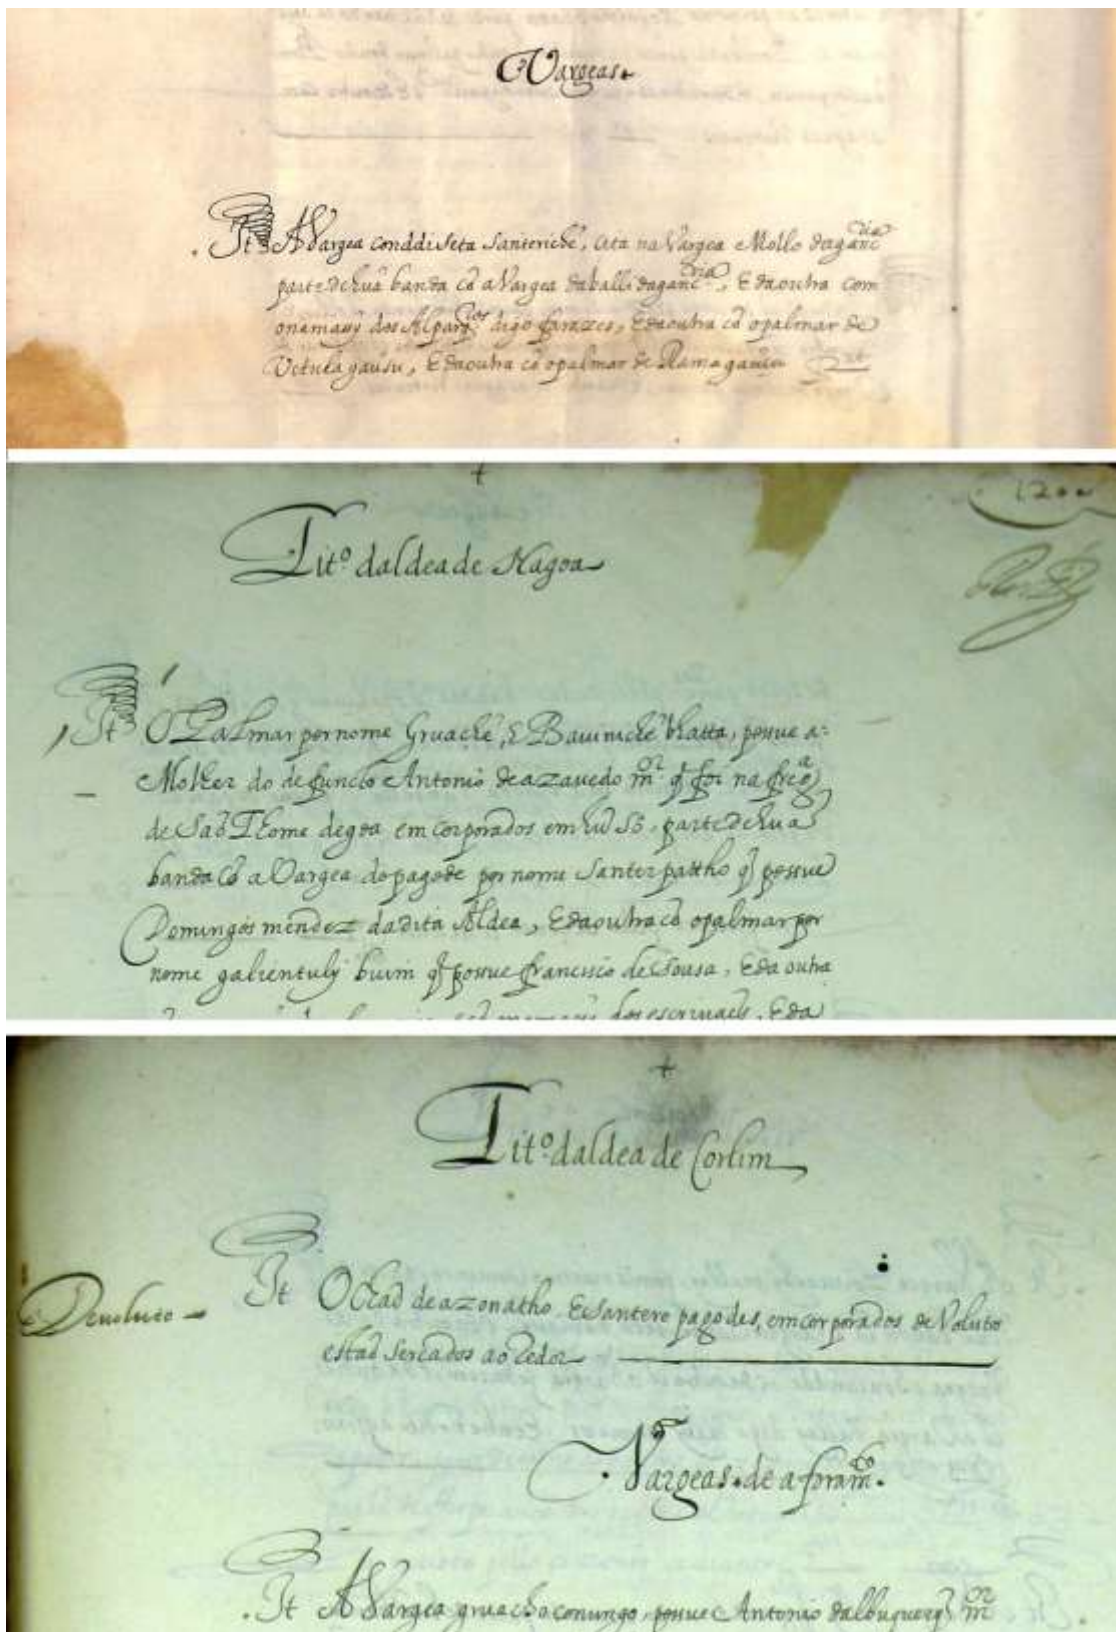 Vargeas
It A Vargea conddi Seta Santeriche, esta na Vargea e Mollo daganc.ria
parte de hua banda cõ a Vargea daballi daganc.ria, E daoutra com
onamasỹ dos Alparq.ros digo farazes, E daoutra cõ opalmar de
Vitula gausu, E daoutra cõ opalmar de Rama
Tit.º daldea de Nagoa
It O Palmar por nome Gruache, E Bauiniche bhatta, possue a:
Molher do defuncto Antonio de azauedo m.or q̃ foi na freg.a
de Saõ Thome degoa em corporados em hũ só, parte de hua
banda cõ a Vargea do pagode por nome Santer pattho q̃ possue
Domingos mendez dadita Aldea, E daoutra cõ opalmar por
nome galientuly buim q̃ possue francisco de Sousa, E da outra
dos escriuaẽs, E da
Tit.º daldea de Corlim
Deuoluto
It O Chaõ de azonatho E Santero pagodes, em corporados de Voluto
estaõ sercados ao redor
Vargeas de a foram.to
It A Vargea gruacho conungo, possue Antonio dalbuquerq̃ m.or